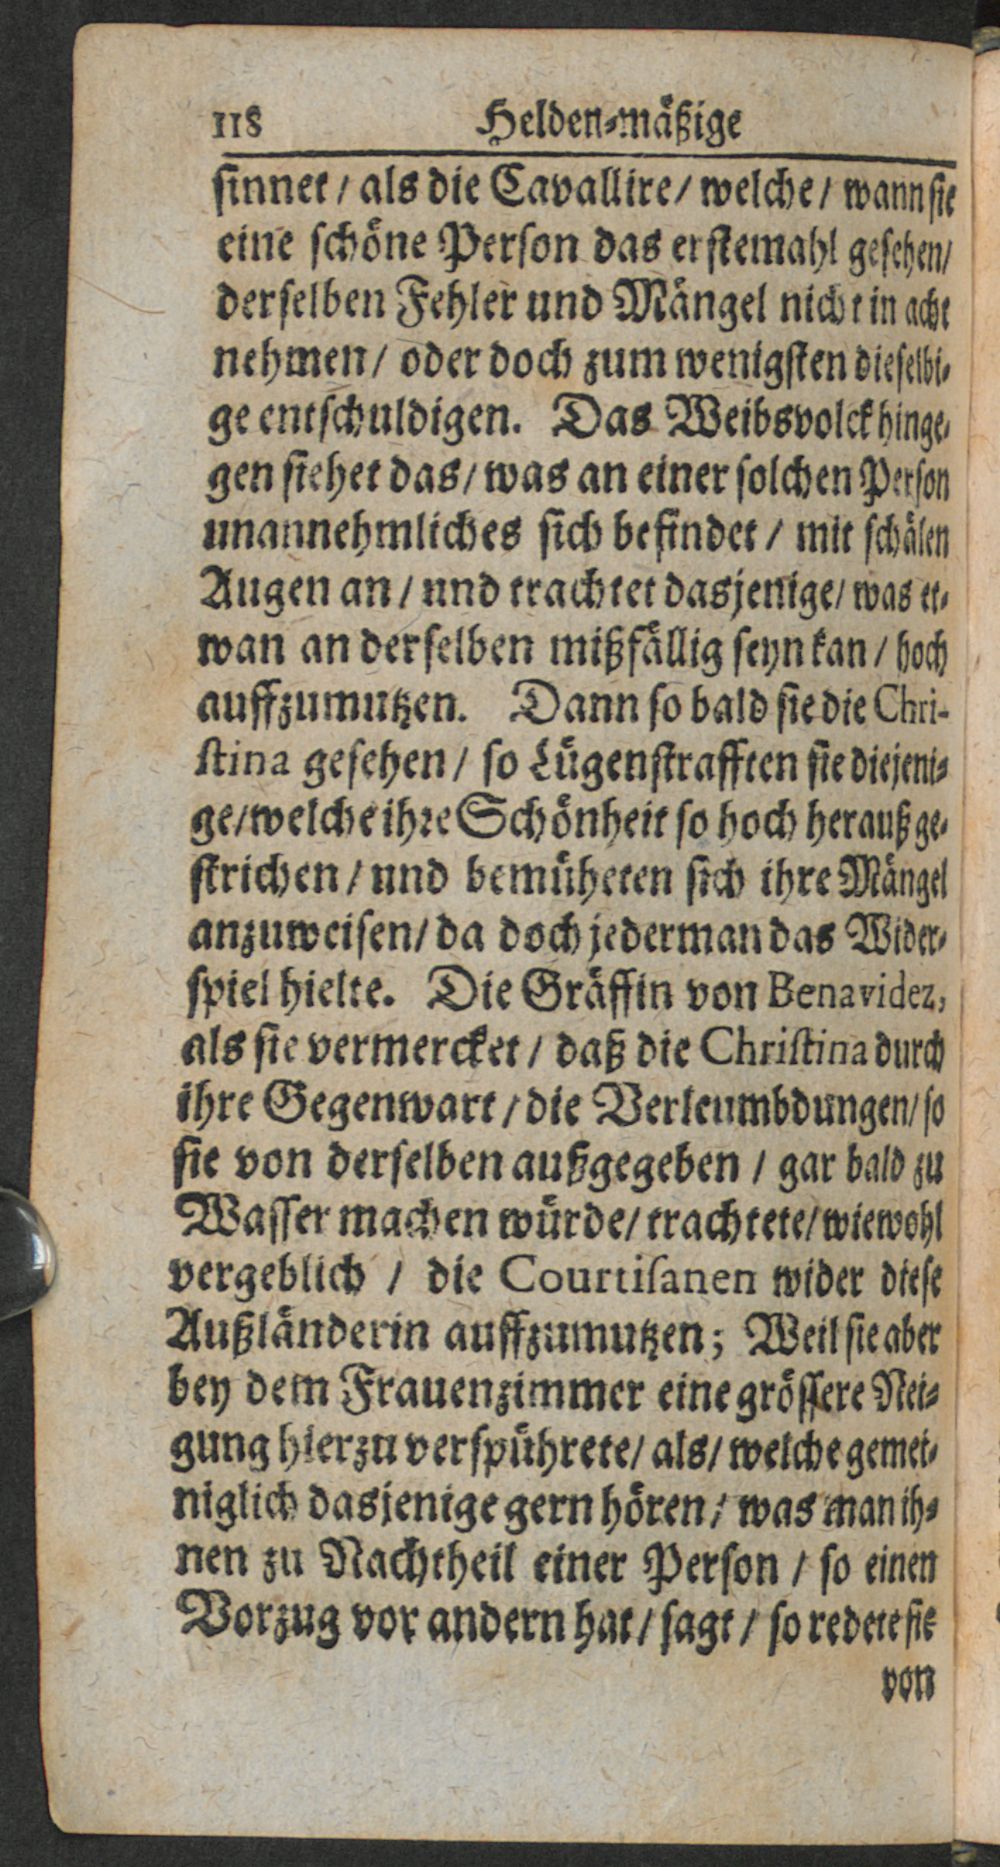 118 Helden-mäßige
sinnet / als die Cavallire / welche / wann sie
eine schöne Person das erstemahl gesehen /
derselben Fehler und Mängel nicht in acht
nehmen / oder doch zum wenigsten dieselbi-
ge entschuldigen. Das Weibsvolck hinge-
gen siehet das / was an einer solchen Person
unannehmliches sich befindet / mit schälen
Augen an / und trachtet dasjenige / was et-
wan an derselben mißfällig seyn kan / hoch
auffzumutzen. Dann so bald sie die Chri-
stina gesehen / so Lügenstrafften sie diejeni-
ge / welche ihre Schönheit so hoch herauß ge-
strichen / und bemüheten sich ihre Mängel
anzuweisen / da doch jederman das Wider-
spiel hielte. Die Gräffin von Benavidez,
als sie vermercket / daß die Christina durch
ihre Gegenwart / die Verleumbdungen / so
sie von derselben außgegeben / gar bald zu
Wasser machen würde / trachtete / wiewohl
vergeblich / die Courtisanen wider diese
Außländerin auffzumutzen; Weil sie aber
bey dem Frauenzimmer eine grössere Nei-
gung hierzu verspührete / als / welche gemei-
niglich dasjenige gern hören / was man ih-
nen zu Nachtheil einer Person / so einen
Vorzug vor andern hat / sagt / so redete sie
von